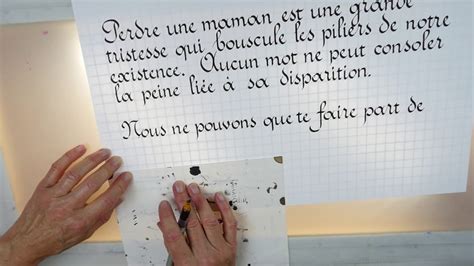 Perdre une maman est une grande
tristesse qui bouscule les piliers de notre
existence. Aucun mot ne peut consoler
la peine liée à sa disparition.
Nous ne pouvons que te faire part de